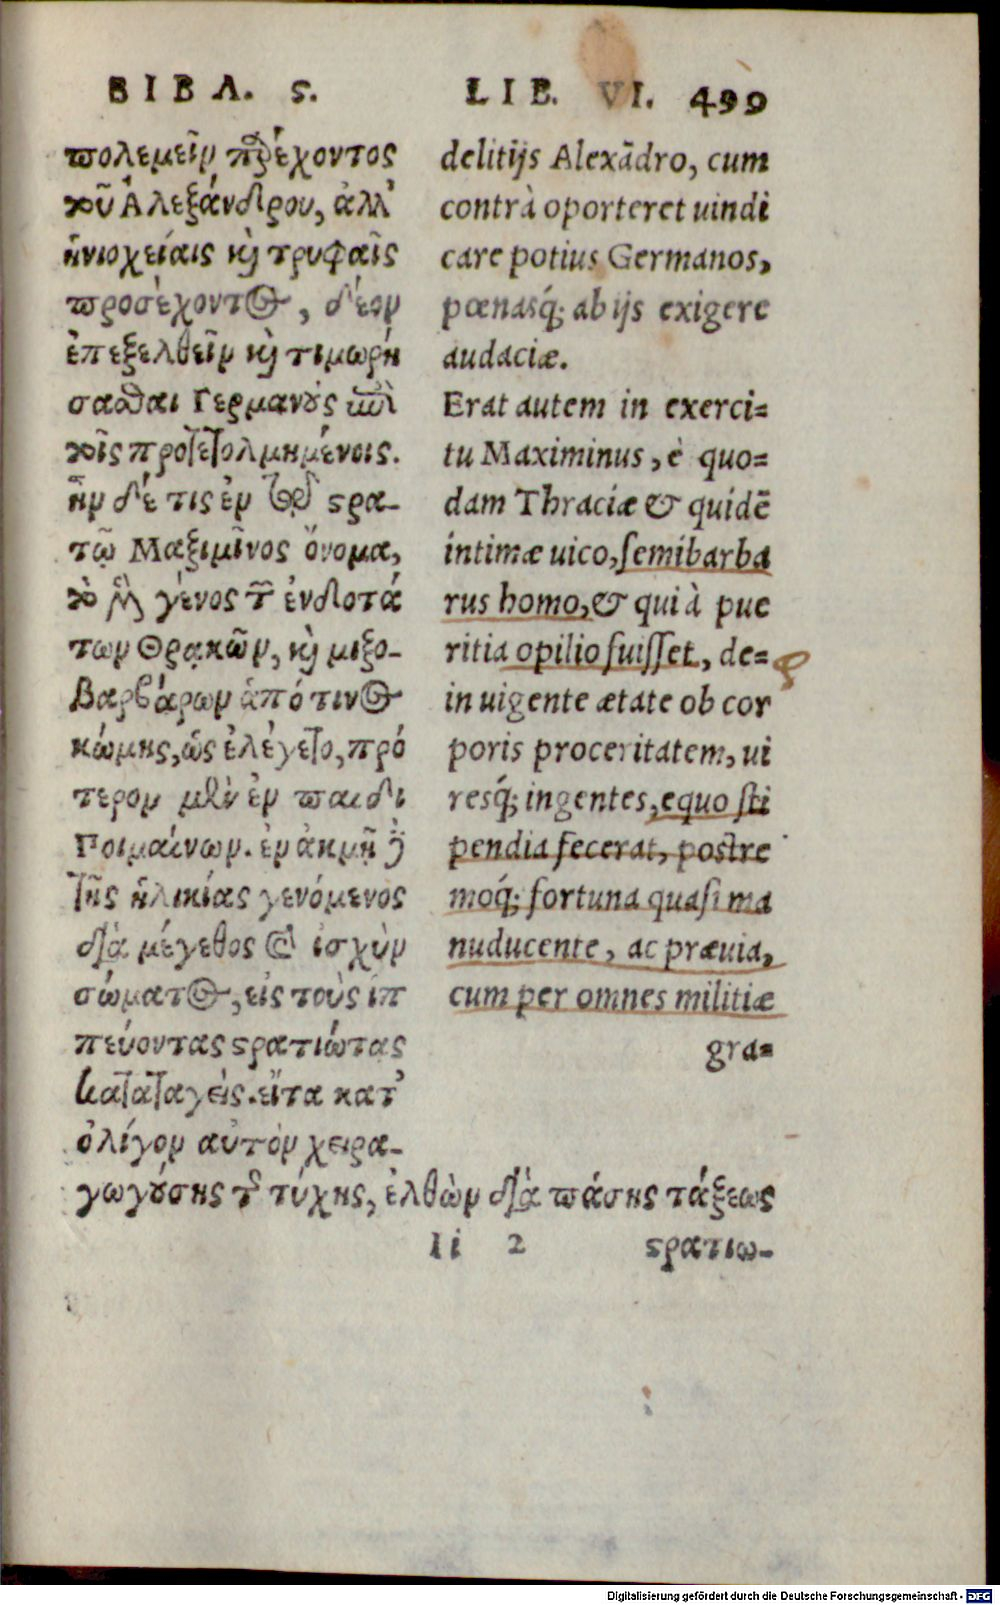 ΒΙΒΛ. ϛ.
πολεμεῖν παρέχοντος
τοῦ Ἀλεξάνδρου, ἀλλ'
ἡνιοχείαις καὶ τρυφαῖς
προσέχοντος, δέον
ἐπεξελθεῖν καὶ τιμωρή
σασθαι Γερμανοὺς ἐπὶ
τοῖς προτετολμημένοις.
ἦν δέ τις ἐν τῷ στρα-
τῷ Μαξιμῖνος ὄνομα,
τὸ μὲν γένος τῶν ἐνδοτά
των Θρᾳκῶν, καὶ μιξο-
βαρβάρων ἀπό τινος
κώμης, ὡς ἐλέγετο, πρό
τερον μὲν ἐν παιδὶ
ποιμαίνων. ἐν ἀκμῇ δὲ
τῆς ἡλικίας γενόμενος
διὰ μέγεθος καὶ ἰσχὺν
σώματος, εἰς τοὺς ἱπ
πεύοντας στρατιώτας
καταταγεὶς. εἶτα κατ'
ὀλίγον αὐτὸν χειρα-
γωγούσης τῆς τύχης, ἐλθὼν διὰ πάσης τάξεως
LIB. VI. 499
delitijs Alexādro, cum
contrà oporteret uindi
care potius Germanos,
pœnasq́; ab ijs exigere
audaciæ.
Erat autem in exerci=
tu Maximinus, è quo=
dam Thraciæ & quidē
intimæ uico, semibarba
rus homo, & qui à pue
ritia opilio fuisset, de=
in uigente ætate ob cor
poris proceritatem, ui
resq́; ingentes, equo sti
pendia fecerat, postre
moq́; fortuna quasi ma
nuducente, ac præuia,
cum per omnes militiæ
gra=
Ii 2 στρατιω-
Digitalisierung gefördert durch die Deutsche Forschungsgemeinschaft - DFG